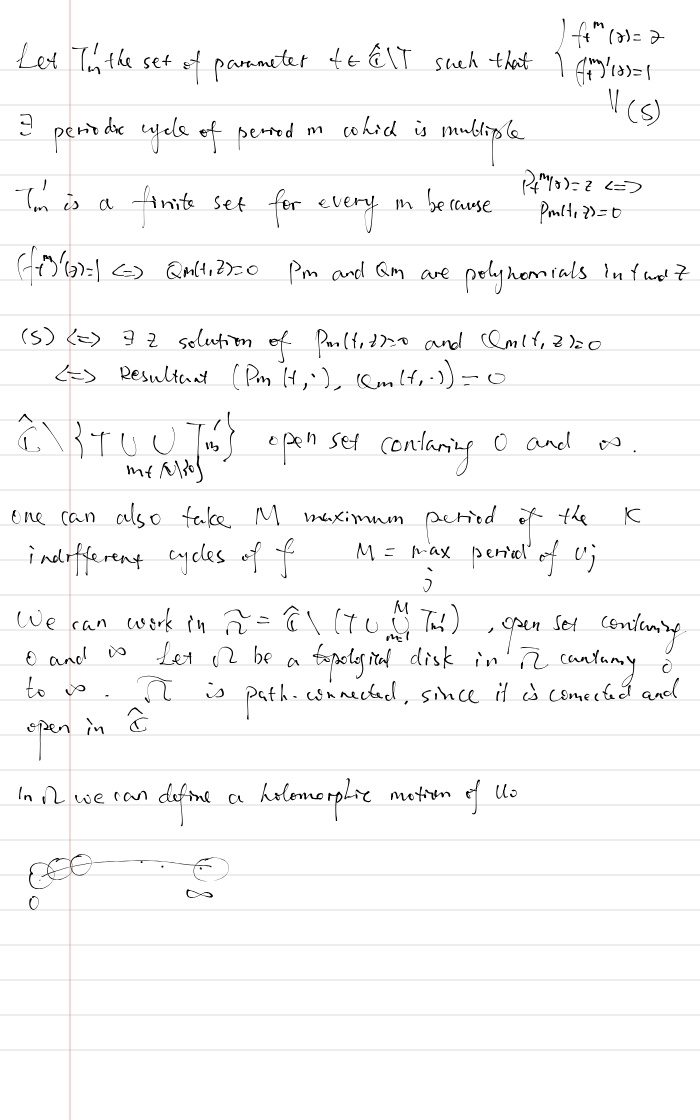 Let T'm the set of parameter t ∈ Ĉ\T such that { ft^m(z) = z
(ft^m)'(z) = 1
(S)
∃ periodic cycle of period m which is multiple
T'm is a finite set for every m because ft^m(z) = z <=>
Pm(t, z) = 0
(ft^m)'(z) = 1 <=> Qm(t, z) = 0 Pm and Qm are polynomials in t and z
(S) <=> ∃ z solution of Pm(t, z) = 0 and Qm(t, z) = 0
<=> Resultant (Pm(t, ·), Qm(t, ·)) = 0
Ĉ \ {T ∪ ∪ T'm} open set contaring 0 and ∞.
m ∈ ℕ\{0}
one can also take M maximum period of the K
indifferent cycles of f M = max period of Uj
j
We can work in Ω̃ = Ĉ \ (T ∪ ∪ T'm), open set contaning
M
m=1
0 and ∞ Let Ω be a topological disk in Ω̃ contaning 0
to ∞. Ω̃ is path-connected, since it is connected and
open in Ĉ
In Ω we can define a holomorphic motion of U0
0 ∞